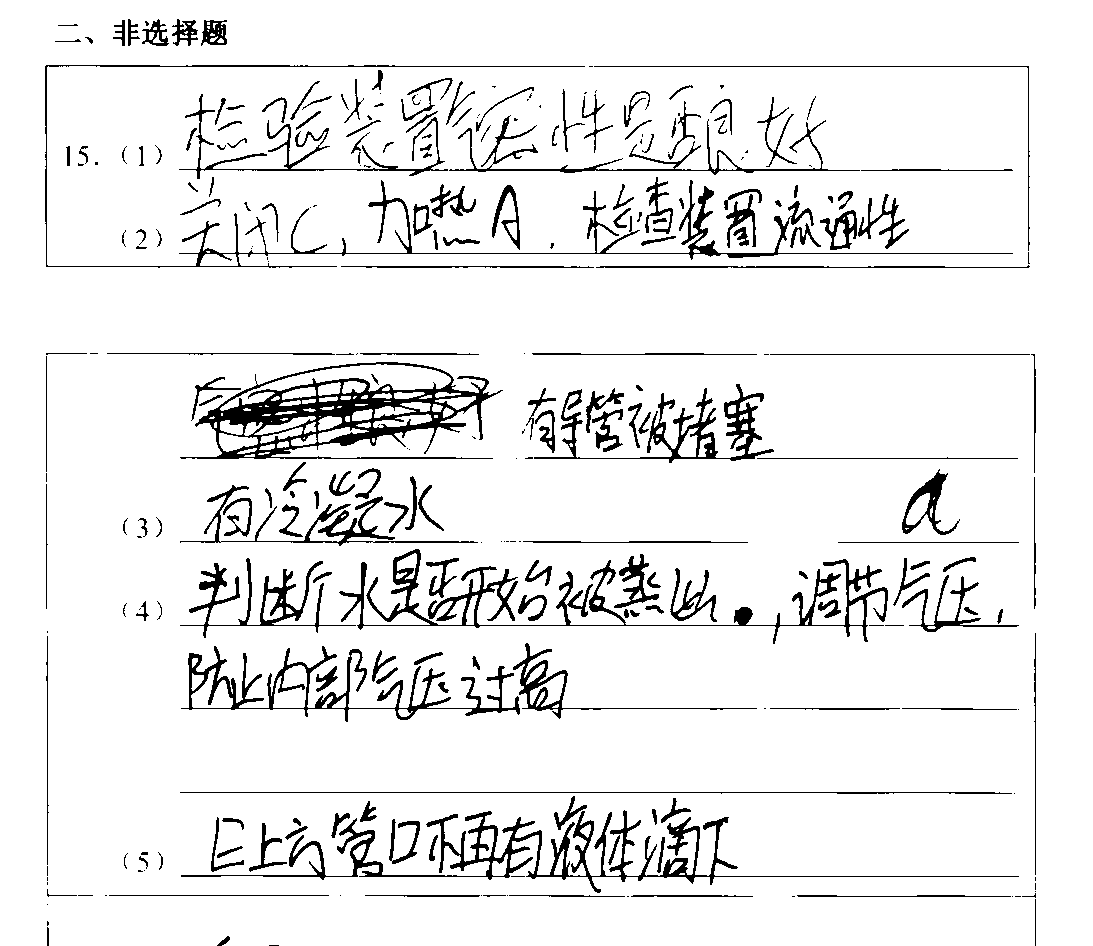 二、非选择题
15.（1）检验装置气密性是否良好
（2）关闭C，加热A．检查装置流通性
有导管被堵塞
（3）有冷凝水 a
（4）判断水是否开始被蒸出．，调节气压，
防止内部气压过高
（5）E上方管口不再有液体滴下